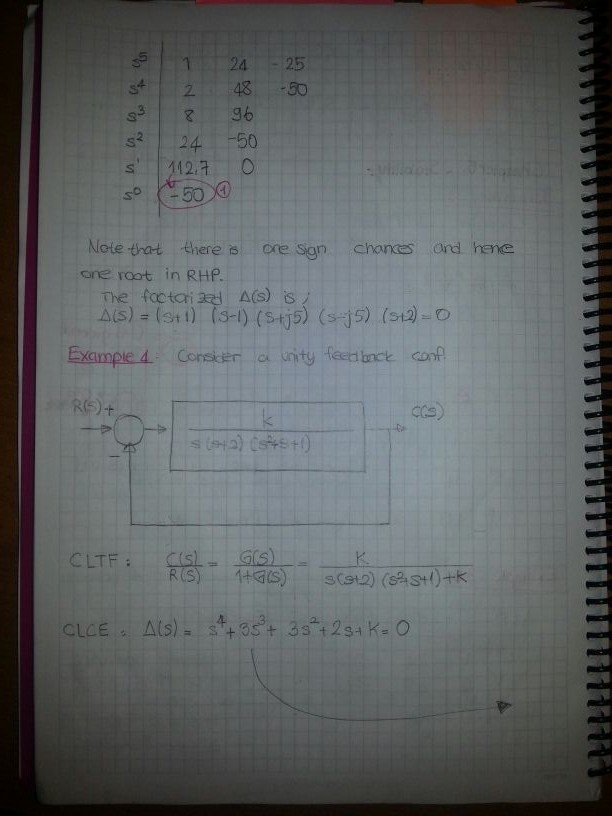 s⁵ 1 24 -25
s⁴ 2 48 -50
s³ 8 96
s² 24 -50
s¹ 112,7 0
s⁰ -50 1
Note that there is one sign chances and hence
one root in RHP.
The factorized Δ(s) is;
Δ(s) = (s+1) (s-1) (s+j5) (s-j5) (s+2) = 0
Example 4: Consider a unity feedback conf.
R(s) + K / s(s+2)(s²+s+1) C(s)
-
CLTF: C(s)/R(s) = G(s)/1+G(s) = K / s(s+2)(s²+s+1)+K
CLCE: Δ(s) = s⁴+3s³+3s²+2s+K=0